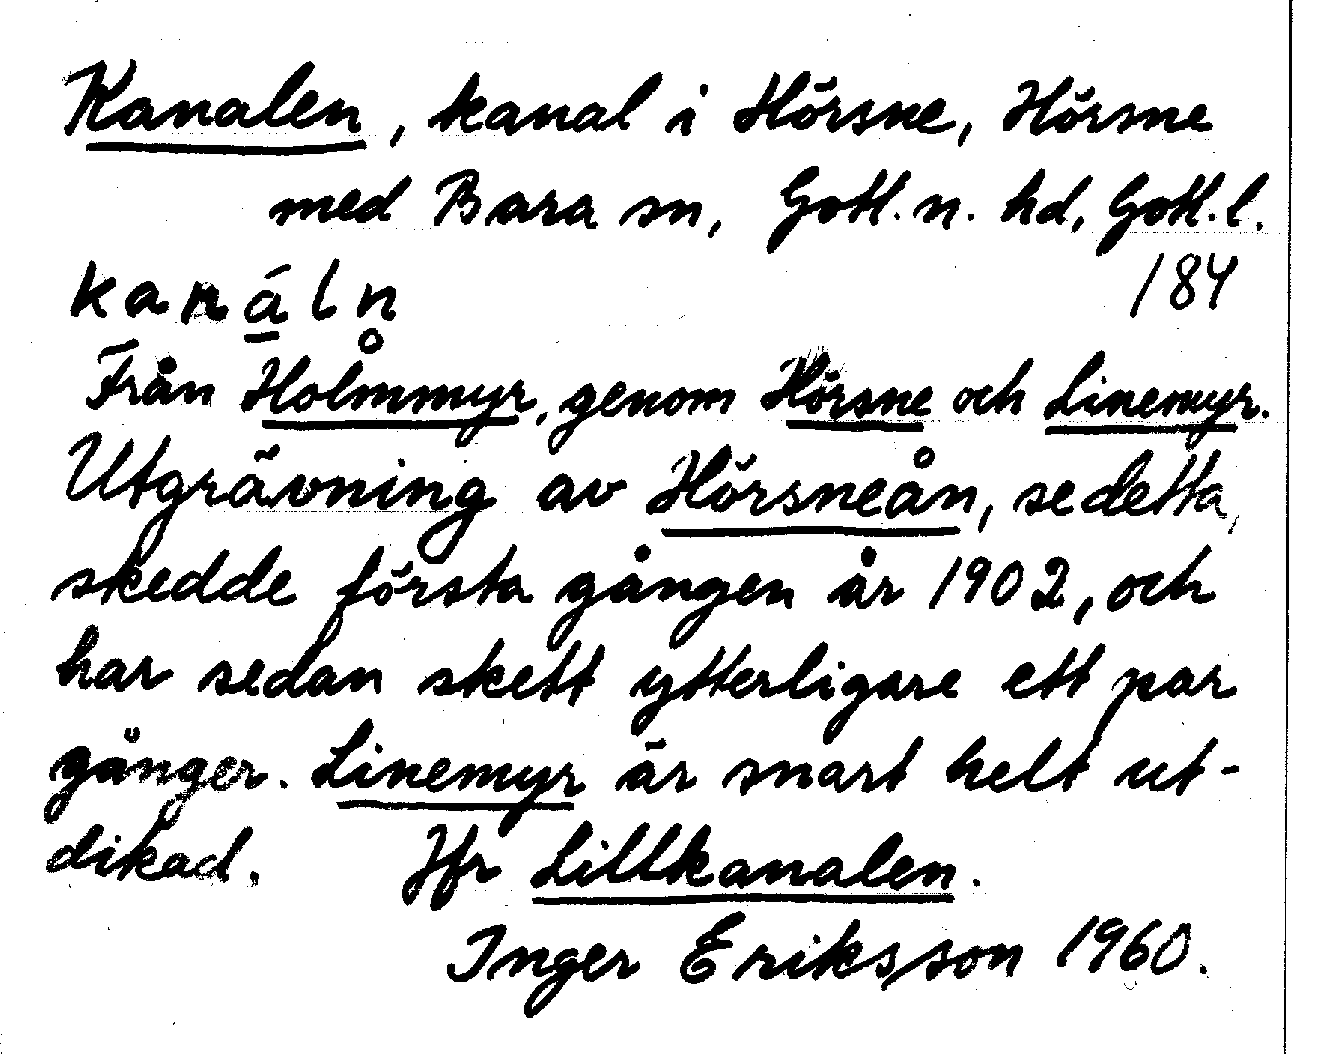 Kanalen, kanal i Hörsne, Hörsne
med Bara sn, Gotl. n. hd, Gotl. l.
kanáln 184
Från Holmmyr, genom Hörsne och Linemyr.
Utgrävning av Hörsneån, se detta,
skedde första gången år 1902, och
har sedan skett ytterligare ett par
gånger. Linemyr är snart helt ut-
dikad. Jfr Lillkanalen.
Inger Eriksson 1960.